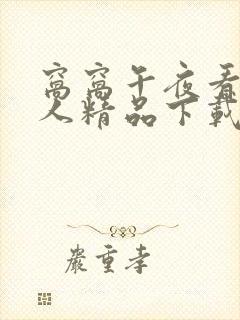 窝窝午夜看
人精品下载
严重孝